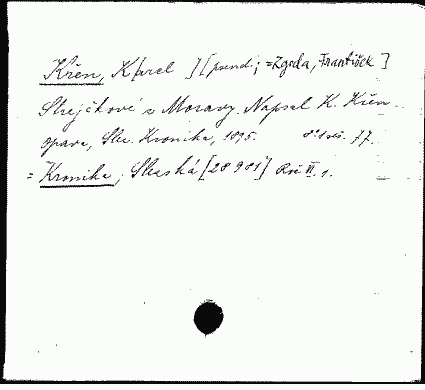 Křen, K[arel] [pseud; =Zgoda, František]
Strejčkové z Moravy. Napsal K. Křen.
Opava, Slez. Kronika, 1895. 8° 1 seš. 77.
= Kronika, Slezská [28981] Roč VI. 1.